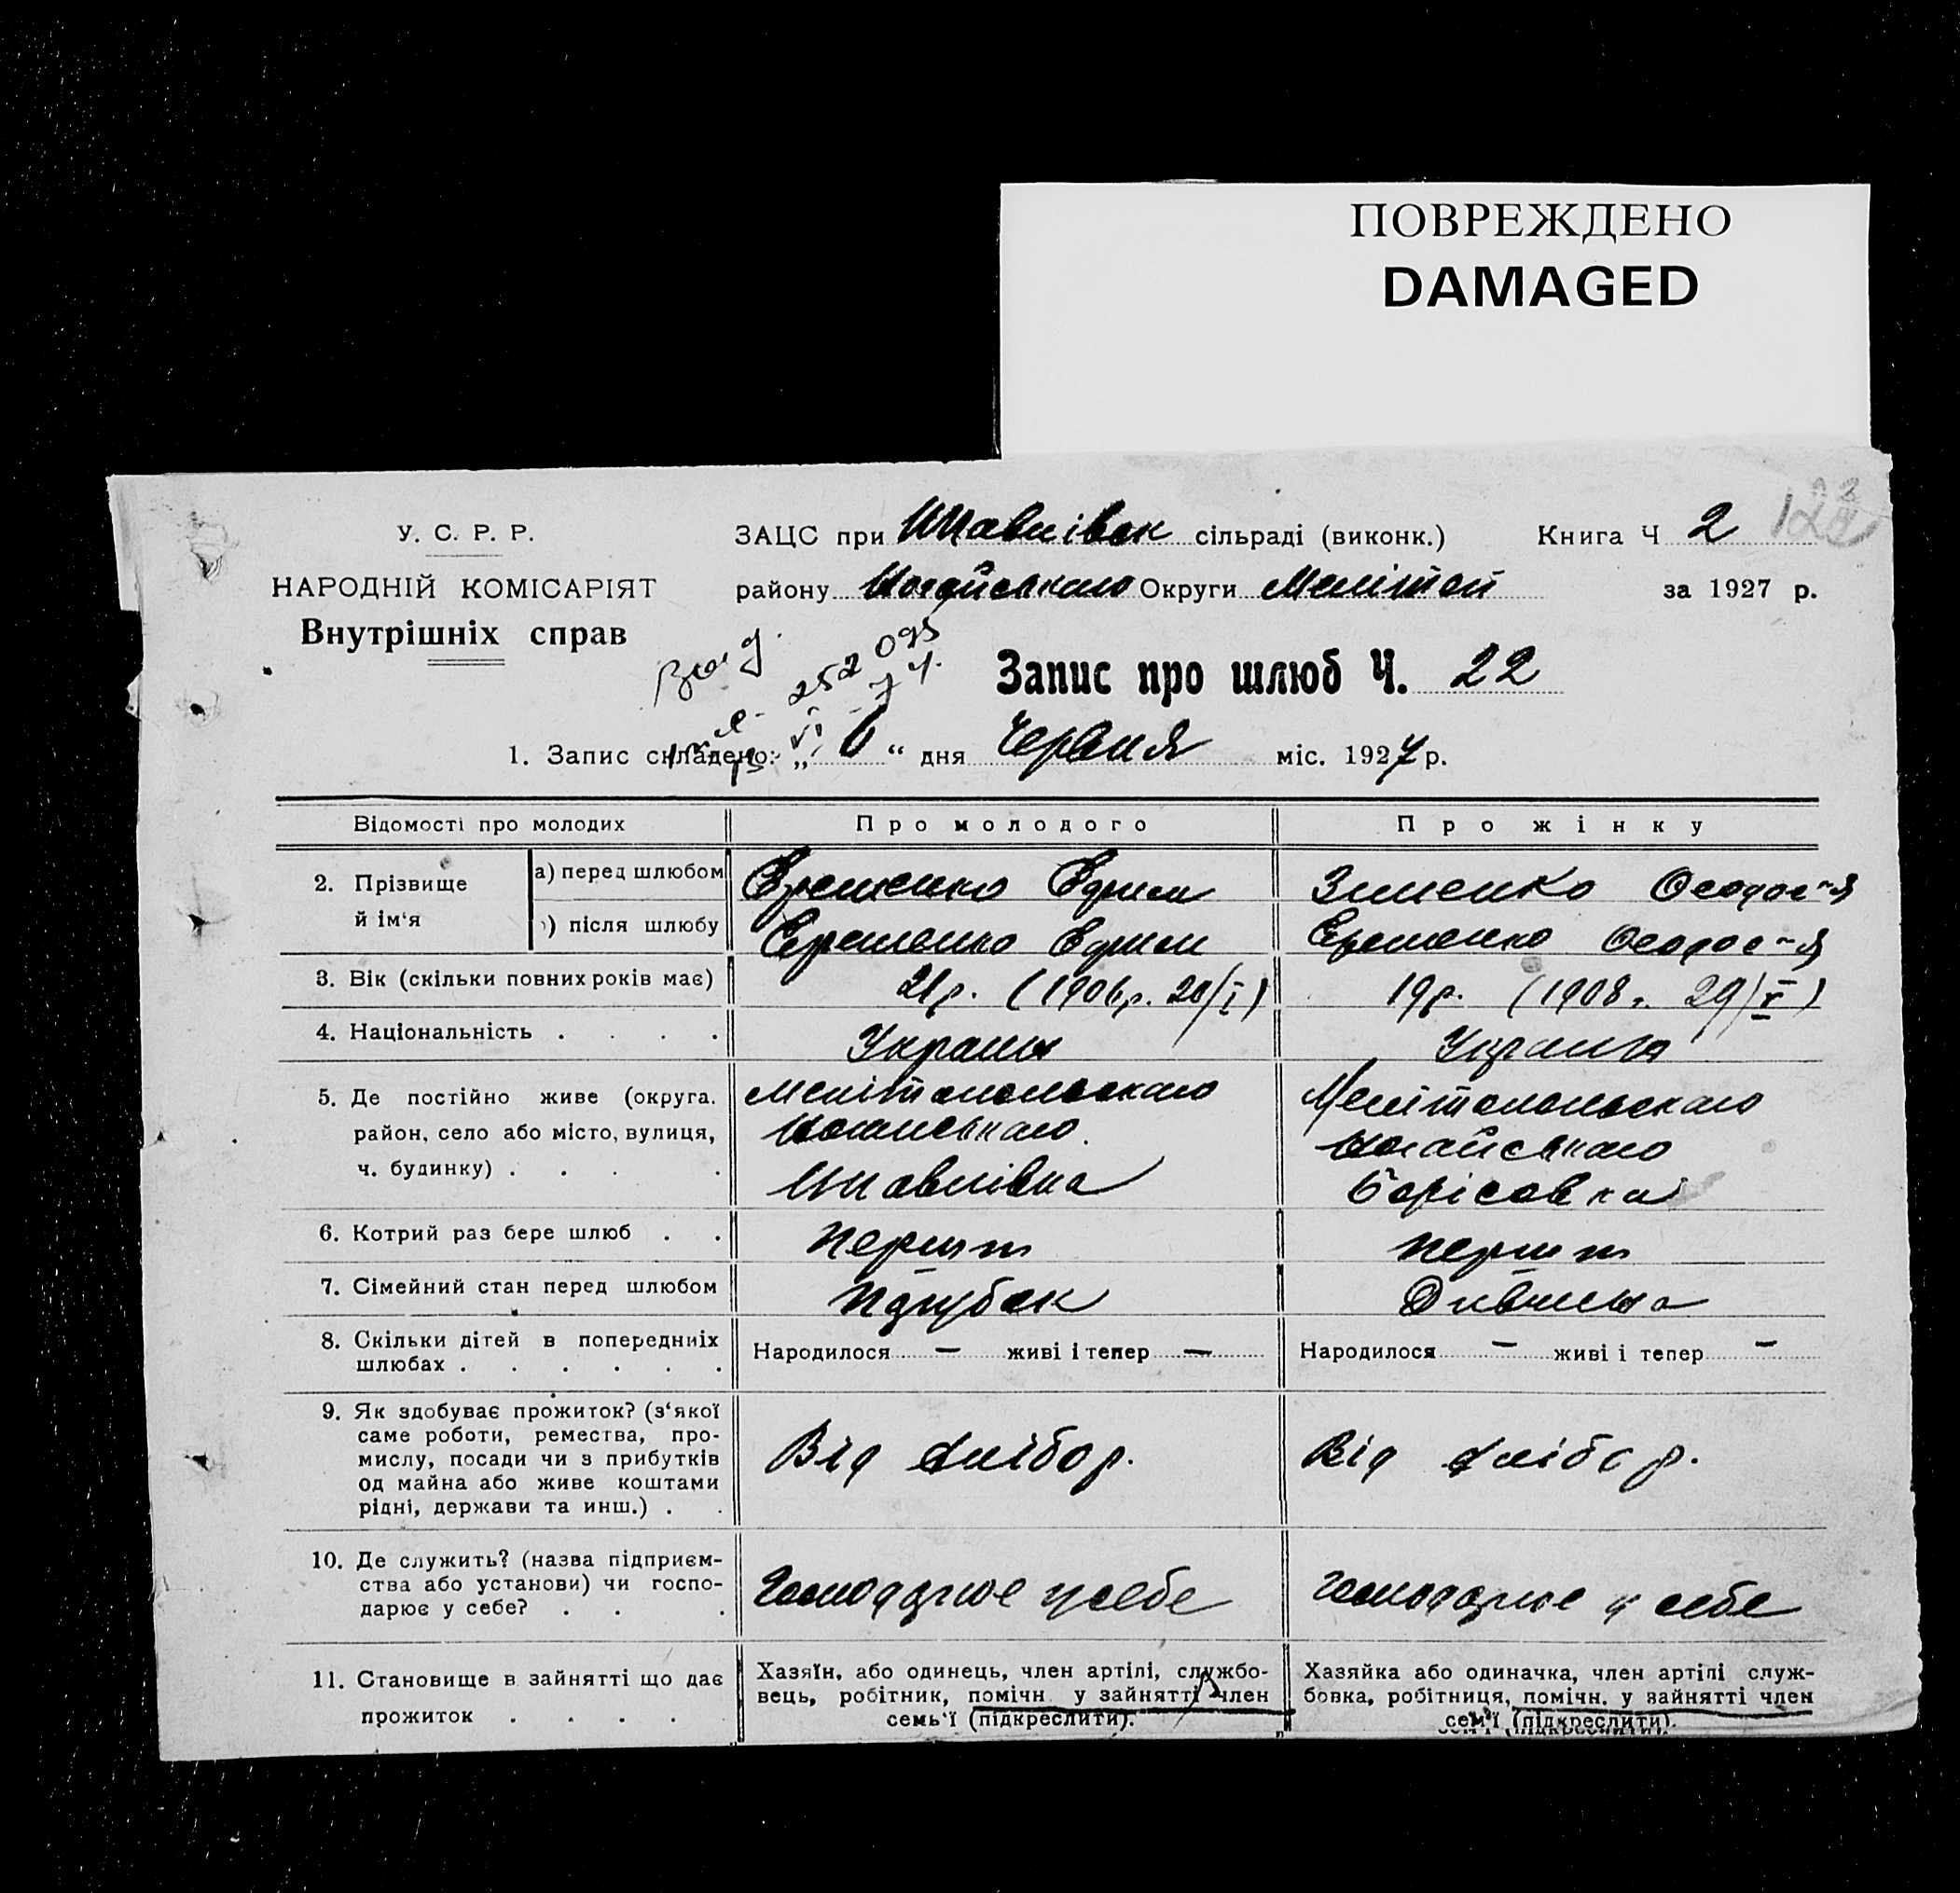 ПОВРЕЖДЕНО
DAMAGED
У. С. Р. Р.
НАРОДНІЙ КОМІСАРІЯТ
Внутрішніх справ
ЗАЦС при сільраді (виконк.) Книга Ч 2
району Ногайського Округи Меліто за 1927 р.
Запис про шлюб Ч. 22
1. Запис складено: „ 6 “ дня Червня міс. 1927 р.
Відомості про молодих Про молодого Про жінку
2. Прізвище й ім‘я
а) перед шлюбом Еременко Ефим Зименко Феодос-я
) після шлюбу Еременко Ефим Еременко Феодос-я
3. Вік (скільки повних років має) 21 р. (1906 р. 20/I) 19 р. (1908 г. 29/V)
4. Національність . . . . Украин Украин
5. Де постійно живе (округа.
район, село або місто, вулиця,
ч. будинку) . . . .
Мелітопольского
Ногайського
Мелітопольского
Ногайського
Борісовка
6. Котрий раз бере шлюб . . перший перший
7. Сімейний стан перед шлюбом Парубок Дивчина
8. Скільки дітей в попередниіх
шлюбах . . . . . .
Народилося — живі і тепер —
Народилося — живі і тепер —
9. Як здобуває прожиток? (з‘якої
саме роботи, ремества, про-
мислу, посади чи з прибутків
од майна або живе коштами
рідні, держави та инш.) . .
Від хлібор.
Від хлібор.
10. Де служить? (назва підприєм-
ства або установи) чи госпо-
дарює у себе? . . .
Господарює у себе
Господарює у себе
11. Становище в зайнятті що дає
прожиток . . . .
Хазяїн, або одинець, член артілі, службо-
вець, робітник, помічн. у зайнятті член
семь‘ї (підкреслити).
Хазяйка або одиначка, член артілі служ-
бовка, робітниця, помічн. у зайнятті член
сем‘ї (підкреслити).